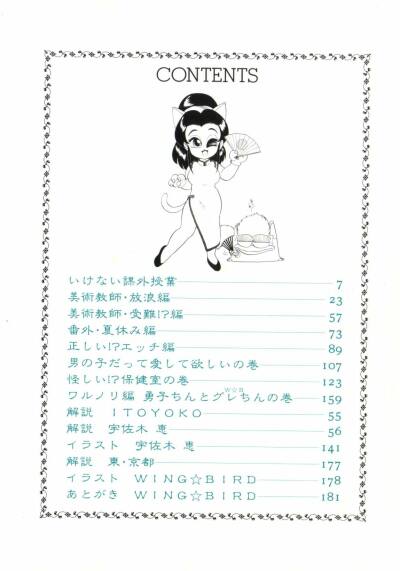 CONTENTS
いけない課外授業 7
美術教師・放浪編 23
美術教師・受難!?編 57
番外・夏休み編 73
正しい!?エッチ編 89
男の子だって愛して欲しいの巻 107
怪しい!?保健室の巻 123
ワルノリ編 勇子ちんとグレちんの巻 159
解説 ITOYOKO 55
解説 宇佐木 恵 56
イラスト 宇佐木 恵 141
解説 東・京都 177
イラスト WING☆BIRD 178
あとがき WING☆BIRD 181